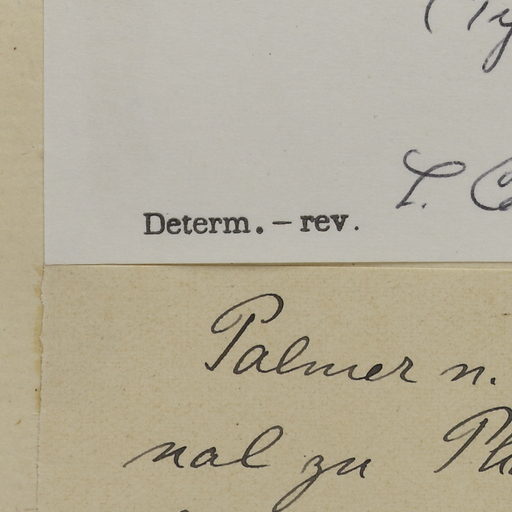 (Ty
L. C
Determ. – rev.
Palmer n.
nal zu Ph